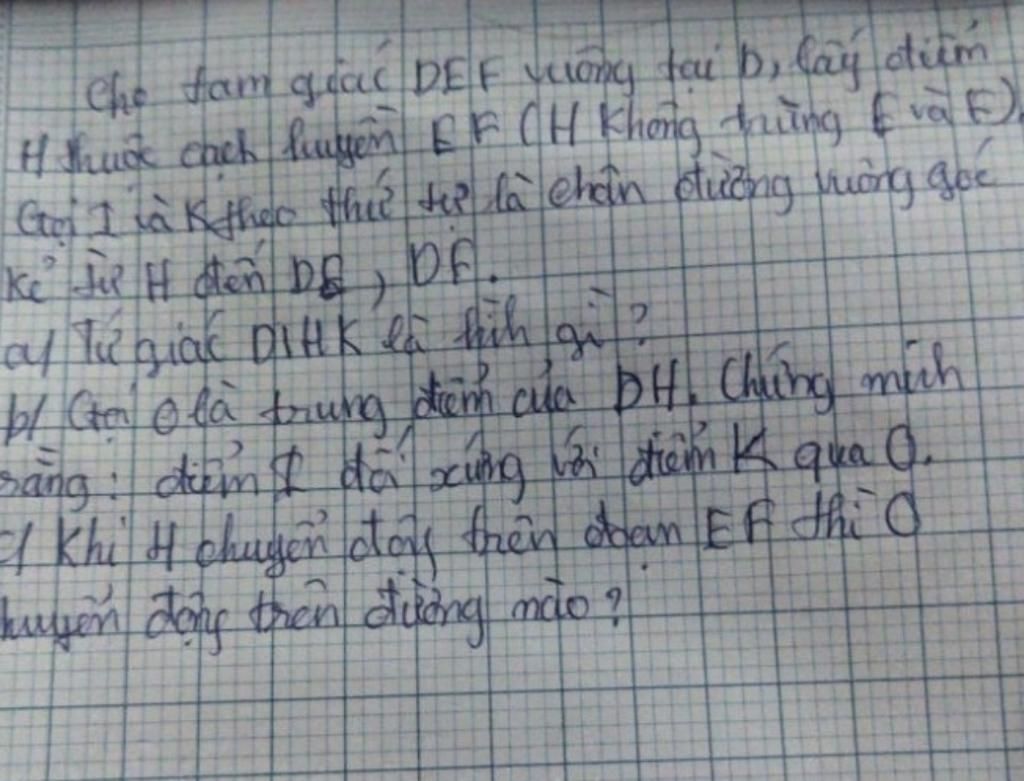 Cho tam giác DEF vuông tại D, lấy điểm
H thuộc cạch huyền EF (H không trùng E và F)
Gọi I và K theo thứ tự là chân đường vuông góc
kẻ từ H đến DE, DF.
a/ Tứ giác DIHK là hình gì?
b/ Gọi O là trung điểm của DH. Chứng minh
rằng: điểm I đối xứng với điểm K qua O.
c/ Khi H chuyển động trên đoạn EF thì O
chuyển động trên đường nào?